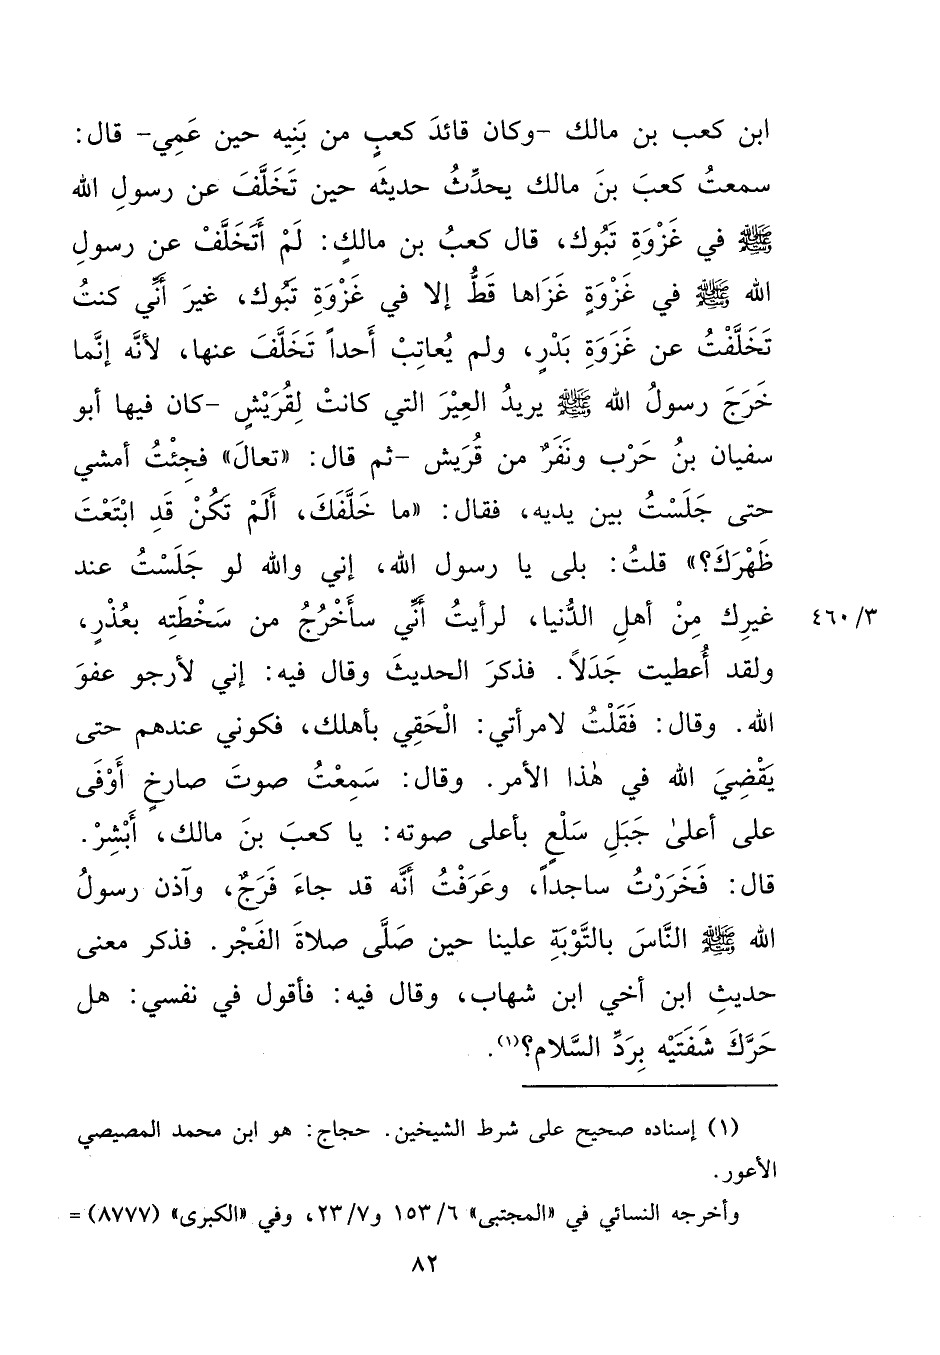 ابن كعب بن مالك -وكان قائدَ كعبٍ من بَنِيه حين عَمِي- قال:
سمعتُ كعبَ بنَ مالك يحدِّثُ حديثَه حين تَخَلَّفَ عن رسولِ الله
ﷺ في غَزْوَةِ تَبُوك، قال كعبُ بن مالكٍ: لَمْ أَتَخَلَّفْ عن رسولِ
الله ﷺ في غَزْوَةٍ غَزَاها قَطُّ إلا في غَزْوَةِ تَبُوك، غيرَ أَنِّي كنتُ
تَخَلَّفْتُ عن غَزَوَةِ بَدْرٍ، ولم يُعاتِبْ أَحداً تَخَلَّفَ عنها، لأنَّه إنَّما
خَرَجَ رسولُ الله ﷺ يريدُ العِيْرَ التي كانتْ لِقُرَيْشٍ -كان فيها أبو
سفيان بنُ حَرْب ونَفَرٌ من قُرَيش -ثم قال: «تعالَ» فجِئْتُ أمشي
حتى جَلَسْتُ بين يديه، فقال: «ما خَلَّفَكَ، أَلَمْ تَكُنْ قَدِ ابْتَعْتَ
ظَهْرَكَ؟» قلتُ: بلى يا رسول الله، إني والله لو جَلَسْتُ عند
غيرِك مِنْ أهلِ الدُّنيا، لرأيتُ أَنِّي سأَخْرُجُ من سَخْطَتِه بعُذْرٍ، ٤٦٠/٣
ولقد أُعطيت جَدَلاً. فذكرَ الحديثَ وقال فيه: إني لأرجو عفوَ
الله. وقال: فَقَلْتُ لامرأتي: الْحَقِي بأهلك، فكوني عندهم حتى
يَقْضِيَ الله في هٰذا الأمر. وقال: سَمِعْتُ صوتَ صارخٍ أَوْفَى
على أعلىٰ جَبَلِ سَلْعٍ بأعلى صوته: يا كعبَ بنَ مالك، أَبْشِرْ.
قال: فَخَرَرْتُ ساجداً، وعَرَفْتُ أَنَّه قد جاءَ فَرَجٌ، وآذن رسولُ
الله ﷺ النَّاسَ بالتَّوْبَةِ علينا حين صَلَّى صلاةَ الفَجْر. فذكر معنى
حديثِ ابن أخي ابن شهاب، وقال فيه: فأقول في نفسي: هل
حَرَّكَ شَفَتَيْه بِرَدِّ السَّلام؟(١).
(١) إسناده صحيح على شرط الشيخين. حجاج: هو ابن محمد المصيصي
الأعور.
وأخرجه النسائي في «المجتبى» ١٥٣/٦ و٢٣/٧، وفي «الكبرى» (٨٧٧٧) =
٨٢